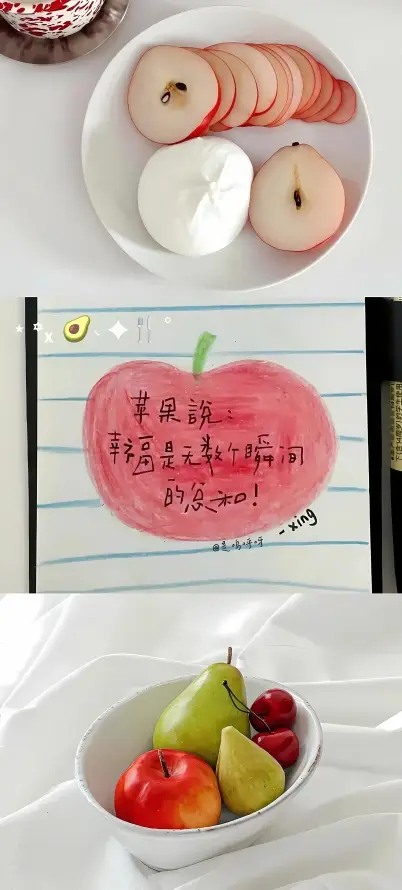 苹果說：
幸福是无数个瞬间
的总和！
-xing
@是呜呼呀